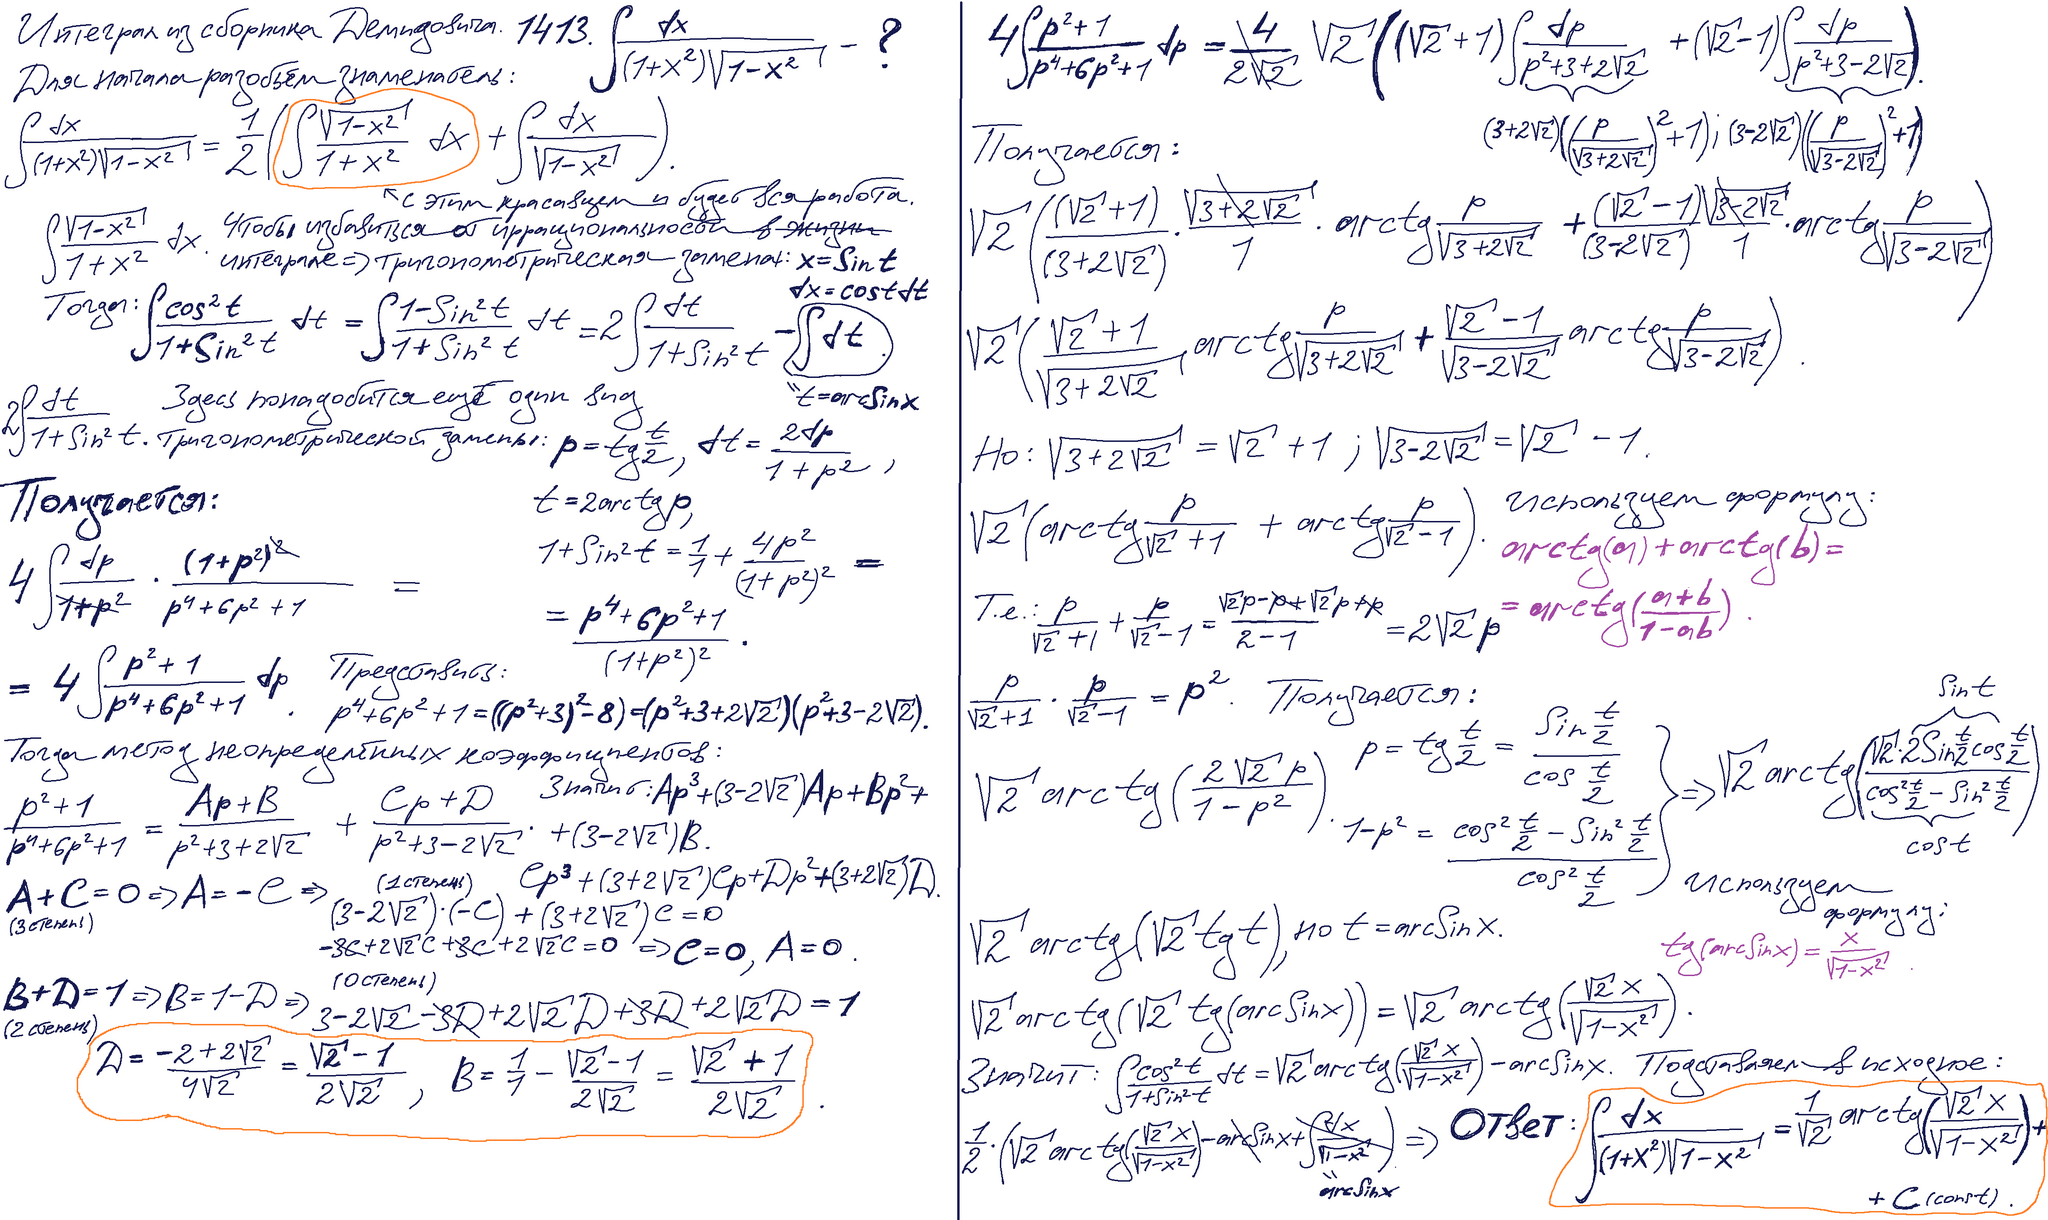 Интеграл из сборника Демидовича. 1413. ∫ dx/((1+x²)√(1-x²)) - ?
Для начала разобьём знаменатель:
∫ dx/((1+x²)√(1-x²)) = 1/2 (∫ √(1-x²)/(1+x²) dx + ∫ dx/√(1-x²)).
↖ с этим красавцем и будет вся работа.
∫ √(1-x²)/(1+x²) dx. Чтобы избавиться от иррациональности в жизни
интеграле => тригонометрическая замена: x = Sin t
dx = cost dt
Тогда: ∫ cos²t/(1+Sin²t) dt = ∫ (1-Sin²t)/(1+Sin²t) dt = 2∫ dt/(1+Sin²t) - ∫dt.
" t = arcSinx
2∫ dt/(1+Sin²t). Здесь понадобится ещё один вид
тригонометрической замены: p = tg t/2, dt = 2dp/(1+p²),
Получается: t = 2arctg p,
1+Sin²t = 1/1 + 4p²/(1+p²)² =
4∫ dp/(1+p²) · (1+p²)²/(p⁴+6p²+1) =
= (p⁴+6p²+1)/(1+p²)².
= 4∫ (p²+1)/(p⁴+6p²+1) dp. Представить:
p⁴+6p²+1 = ((p²+3)²-8) = (p²+3+2√2)(p²+3-2√2).
Тогда метод неопределённых коэффициентов:
(p²+1)/(p⁴+6p²+1) = (Ap+B)/(p²+3+2√2) + (Cp+D)/(p²+3-2√2). Значит: Ap³+(3-2√2)Ap+Bp²+
+(3-2√2)B.
Cp³+(3+2√2)Cp+Dp²+(3+2√2)D.
A+C=0 => A=-C => (1 степень)
(3 степень) (3-2√2)·(-C) + (3+2√2)C = 0
-3C+2√2C+3C+2√2C=0 => C=0, A=0.
(0 степень)
B+D=1 => B=1-D => 3-2√2-3D+2√2D+3D+2√2D = 1
(2 степень)
D = (-2+2√2)/(4√2) = (√2-1)/(2√2), B = 1/1 - (√2-1)/(2√2) = (√2+1)/(2√2).
4∫ (p²+1)/(p⁴+6p²+1) dp = 4/(2√2) √2 ((√2+1)∫ dp/(p²+3+2√2) + (√2-1)∫ dp/(p²+3-2√2)).
(3+2√2)((p/√(3+2√2))²+1); (3-2√2)((p/√(3-2√2))²+1)
Получается:
√2 ((√2+1)/(3+2√2) · √(3+2√2)/1 · arctg p/√(3+2√2) + (√2-1)√(3-2√2)/((3-2√2) 1) · arctg p/√(3-2√2))
√2 ((√2+1)/√(3+2√2) arctg p/√(3+2√2) + (√2-1)/√(3-2√2) arctg p/√(3-2√2)).
Но: √(3+2√2) = √2+1; √(3-2√2) = √2-1.
√2 (arctg p/(√2+1) + arctg p/(√2-1)). Используем формулу:
arctg(a)+arctg(b)=
= arctg((a+b)/(1-ab)).
Т.е.: p/(√2+1) + p/(√2-1) = (√2p-p+√2p+p)/(2-1) = 2√2 p
p/(√2+1) · p/(√2-1) = p². Получается:
√2 arctg(2√2p/(1-p²)). p = tg t/2 = Sin t/2 / cos t/2
1-p² = (cos² t/2 - Sin² t/2)/cos² t/2
=> √2 arctg((√2·2Sin t/2 cos t/2)/(cos² t/2 - Sin² t/2))
Sin t
cos t
√2 arctg(√2 tg t), но t = arcSinx.
Используем
формулу:
tg(arcSinx) = x/√(1-x²).
√2 arctg(√2 tg(arcSinx)) = √2 arctg(√2x/√(1-x²)).
Значит: ∫ cos²t/(1+Sin²t) dt = √2 arctg(√2x/√(1-x²)) - arcSinx. Подставляем в исходное:
1/2·(√2 arctg(√2x/√(1-x²)) - arcSinx + ∫dx/√(1-x²)) =>
" arcSinx
Ответ: ∫ dx/((1+x²)√(1-x²)) = 1/√2 arctg(√2x/√(1-x²)) +
+ C (const).